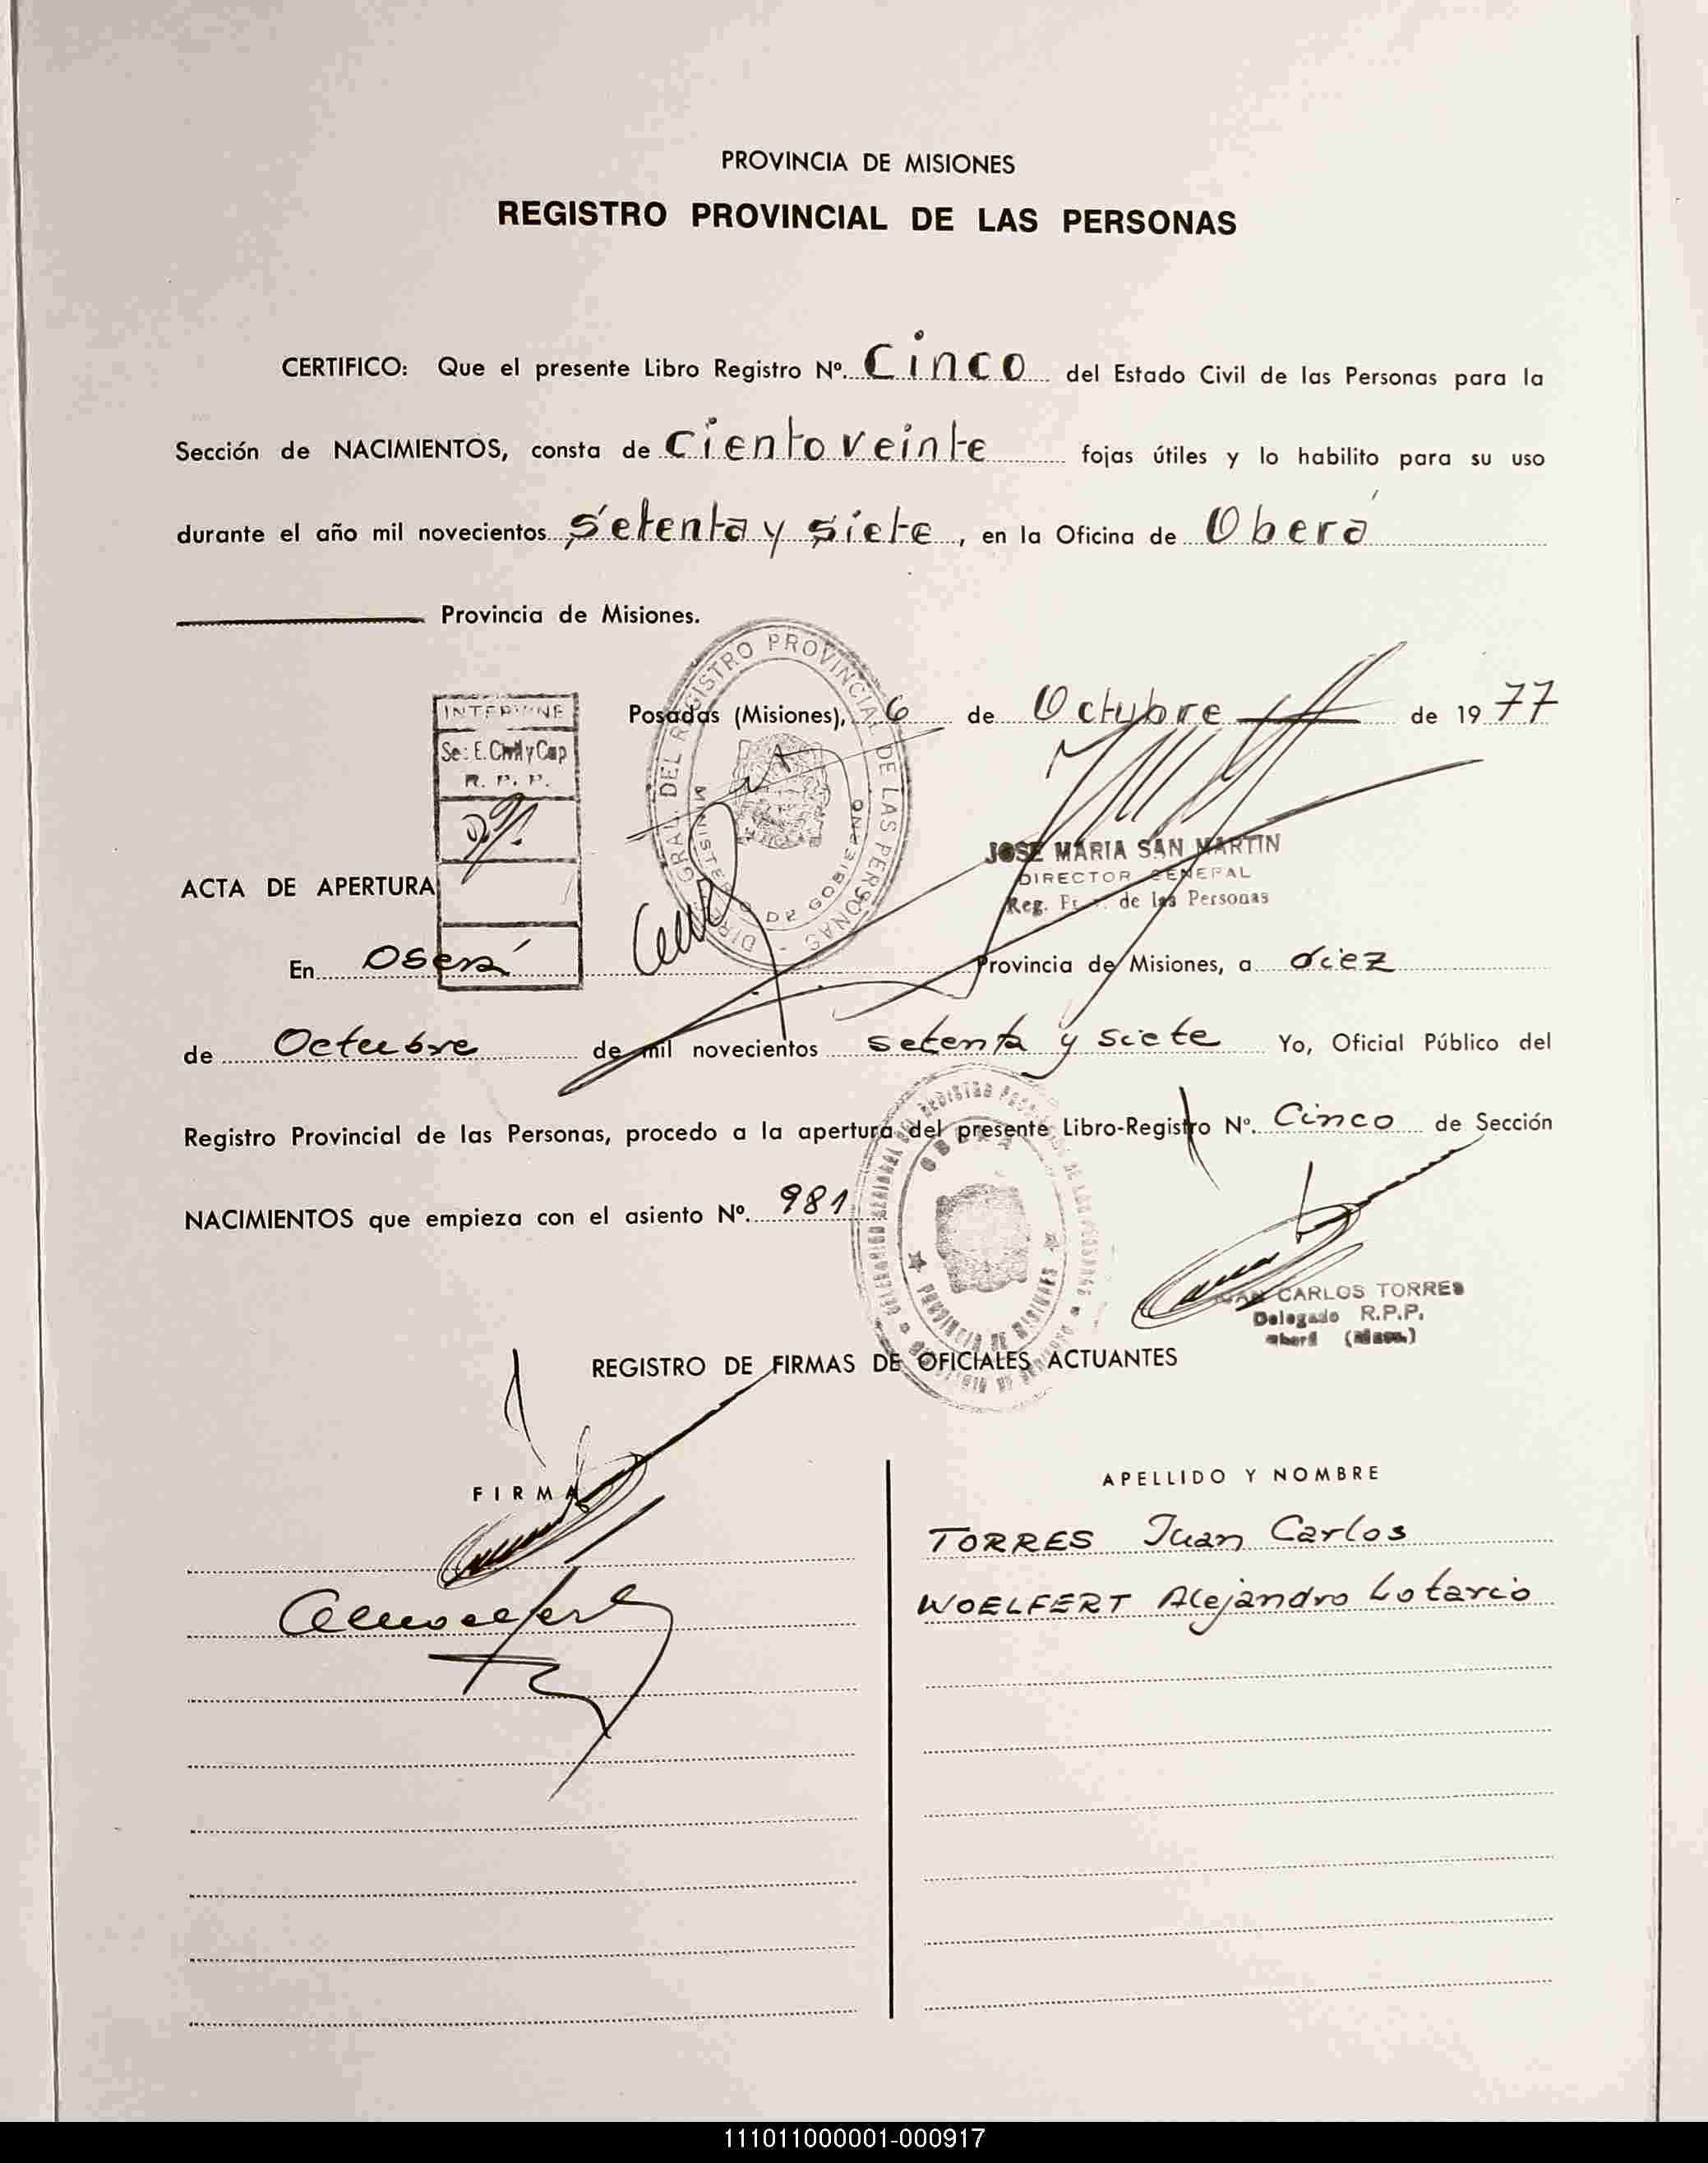 PROVINCIA DE MISIONES
REGISTRO PROVINCIAL DE LAS PERSONAS
CERTIFICO: Que el presente Libro Registro Nº. Cinco del Estado Civil de las Personas para la
Sección de NACIMIENTOS, consta de Ciento veinte fojas útiles y lo habilito para su uso
durante el año mil novecientos Setenta y siete, en la Oficina de Oberá
Provincia de Misiones.
INTERVINE
Sec: E. Civil y Cap
R. P. P.
DIR. GRAL. DEL REGISTRO PROVINCIAL DE LAS PERSONAS -
MINISTERIO DE GOBIERNO
Posadas (Misiones), 6 de Octubre de 1977
JOSE MARIA SAN MARTIN
DIRECTOR GENERAL
Reg. de las Personas
ACTA DE APERTURA
En Oberá Provincia de Misiones, a diez
de Octubre de mil novecientos setenta y siete Yo, Oficial Público del
Registro Provincial de las Personas, procedo a la apertura del presente Libro-Registro Nº. Cinco de Sección
NACIMIENTOS que empieza con el asiento Nº. 981
PROVINCIA DE MISIONES
CARLOS TORRES
Delegado R.P.P.
Oberá (Mnes.)
REGISTRO DE FIRMAS DE OFICIALES ACTUANTES
FIRMA
APELLIDO Y NOMBRE
TORRES Juan Carlos
WOELFERT Alejandro Lotario
111011000001-000917